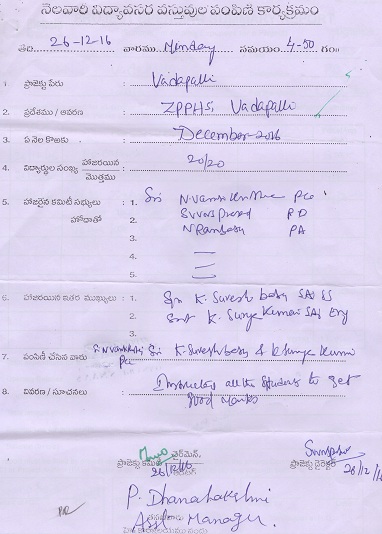 నెలవారీ విద్యావసర వస్తువుల పంపిణీ కార్యక్రమం
తేది 26-12-16 వారము Monday సమయం 4-50 గం॥
1. ప్రాజెక్టు పేరు Vadapalli
2. ప్రదేశము / ఆవరణ ZPPHS, Vadapalli
3. ఏ నెల కొఱకు December-2016
4. విద్యార్థుల సంఖ్య హాజరయిన 20/20
మొత్తము
5. హాజరైన కమిటీ సభ్యులు : 1. Sri
హోదాతో 2. SVVRS Prasad PD
3. N Rambabu PA
3.
4.
5.
6. హాజరయిన ఇతర ముఖ్యులు : 1. Sri K. Suresh babu SA SS
2. Smt K. Surya Kumari SA Eng
3.
7. పంపిణీ చేసిన వారు Sri K. Suresh babu & K Surya Kumari
8. వివరణ / సూచనలు Instructing all the Students to get
good marks
ఛైర్మెన్,
ప్రాజెక్టు కమిటీ ప్రాజెక్టు డైరెక్టర్
26/12/16 26/12/16
P. Dhanalakshmi
Asst Manager.